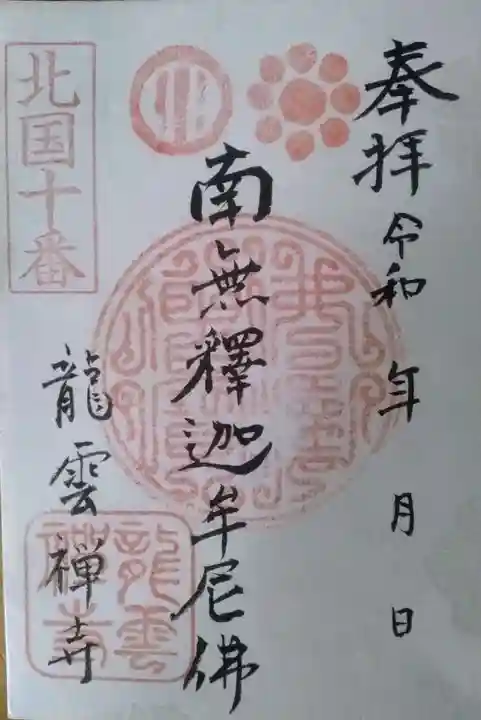 奉拝 令和 年 月 日
南無釋迦牟尼佛
北国十番
龍雲禅寺
龍雲禅寺